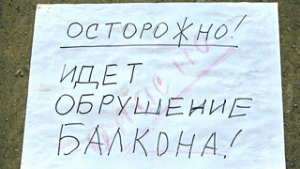 ОСТОРОЖНО!
ИДЕТ
ОБРУШЕНИЕ
БАЛКОНА!